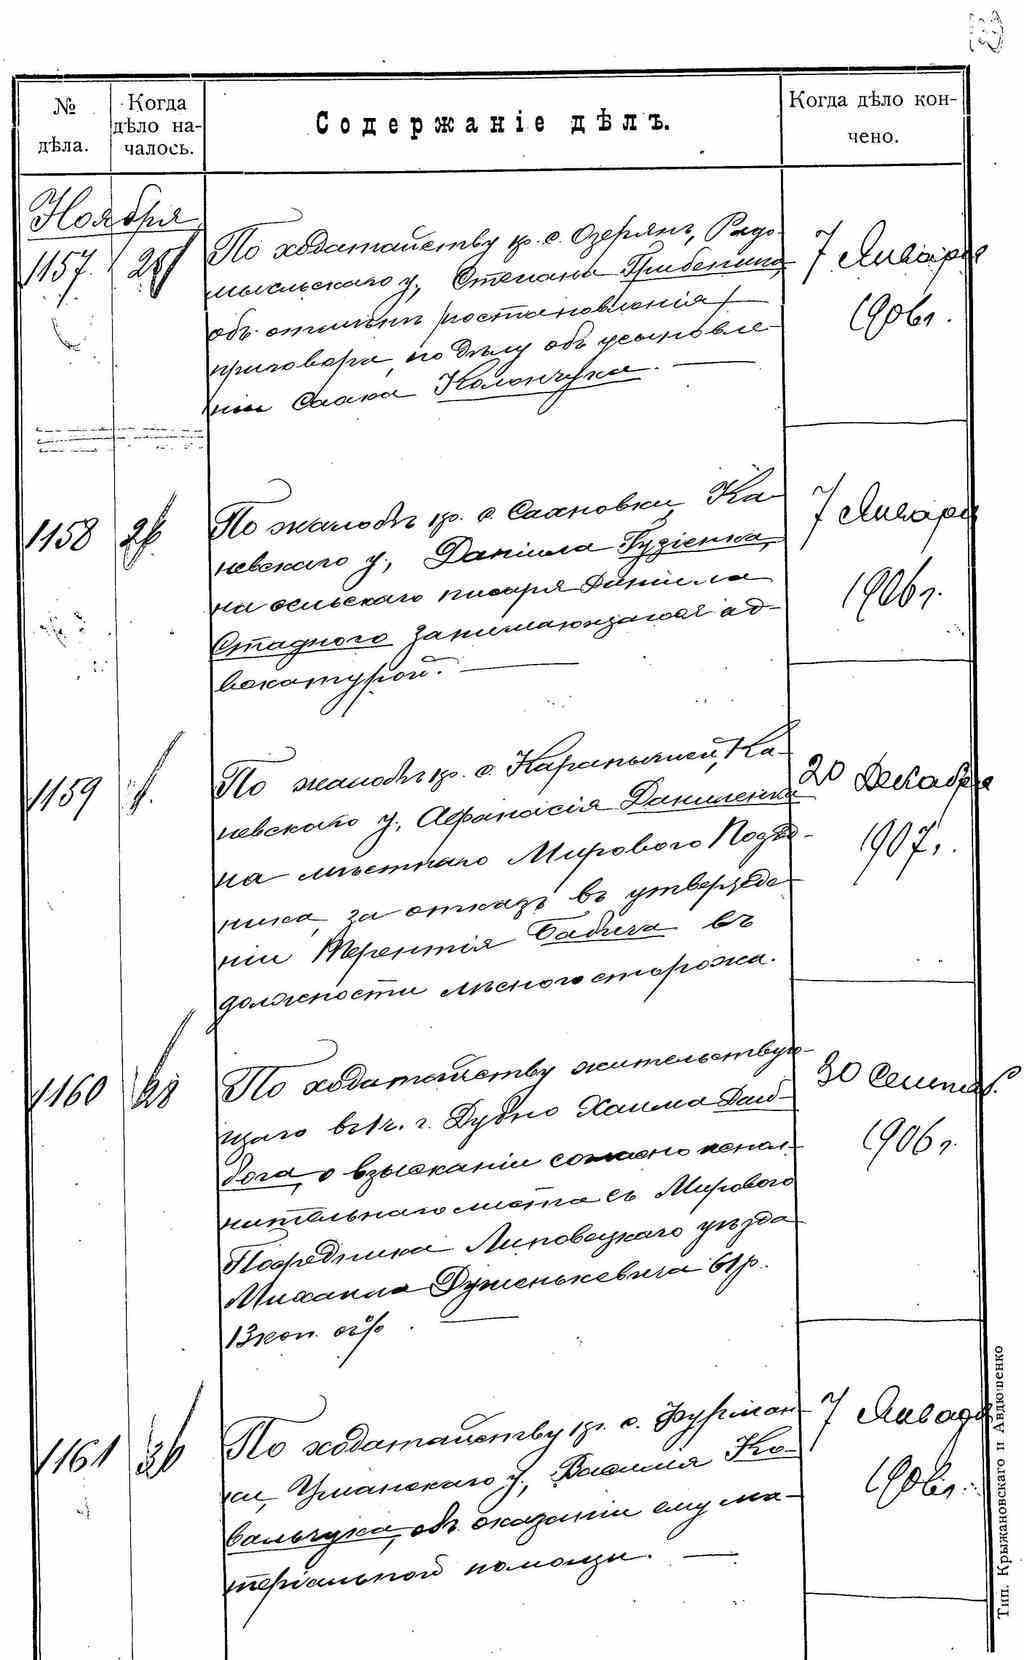 № дѣла.
Когда дѣло началось.
Содержаніе дѣлъ.
Когда дѣло кончено.
Ноября
1157.
По ходатайству кр. с. Озерянъ, Радо-
7 Января
мысльскаго у., Степана
1906 г.
объ отмѣнѣ постановленія
приговора, по дѣлу объ усыновле-
ніи Саака Колончука.
1158
26
По жалобѣ кр. с. Сахновки, Ка-
7 Января
невскаго у., Даніила Гузіенка,
на сельскаго писаря Даніила
1906 г.
Стадного занимающагося ад-
вокатурой.
1159
По жалобѣ кр. с. Карапышей, Ка-
20 Декабря
невскаго у., Афанасія Даниленка
1907 г.
на мѣстнаго Мирового Посред-
ника, за отказъ въ утвержде-
ніи Терентія Бабича въ
должности лѣсного сторожа.
1160
28
По ходатайству жительствую-
30 Сентяб.
щаго въ г. Дубно Хаима Дай-
1906 г.
бога, о взысканіи согласно испол-
нительнаго листа съ Мирового
Посредника Липовецкаго уѣзда
Михаила 61 р.
13 коп. съ %
1161
30
По ходатайству кр. с. Фурман-
7 Января
ки, Уманскаго у., Василія Ко-
1906 г.
вальчука, объ оказаніи ему ма-
теріальной помощи.
Тип. Крыжановскаго и Авдюшенко